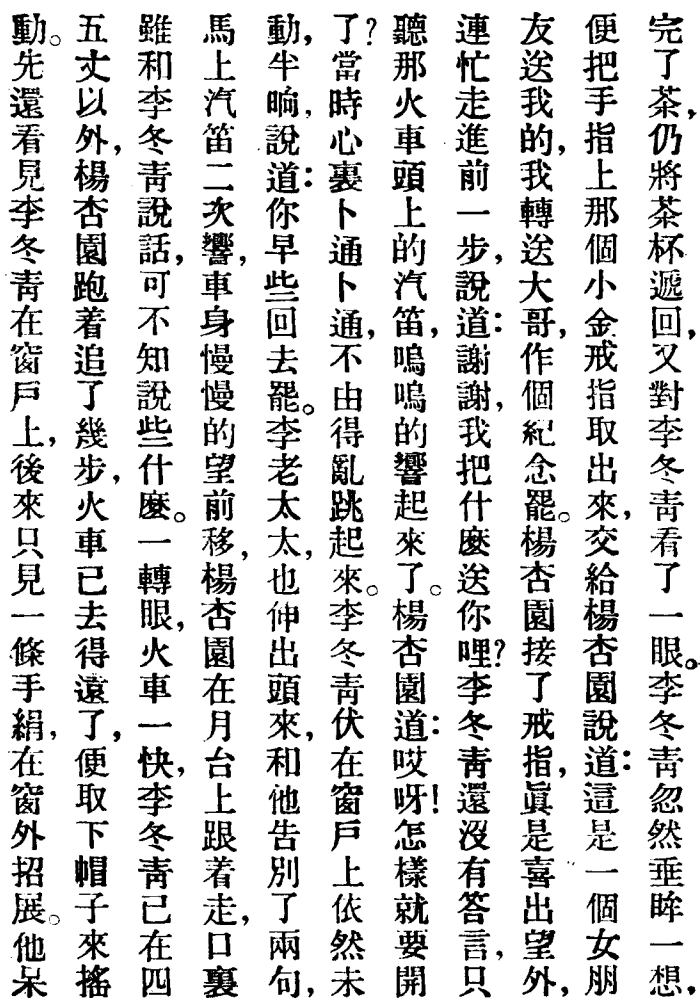 完了茶，仍將茶杯遞回，又對李冬青看了一眼。李冬青忽然垂眸一想，
便把手指上那個小金戒指取出來，交給楊杏園說道：這是一個女朋
友送我的，我轉送大哥，作個紀念罷。楊杏園接了戒指，眞是喜出望外，
連忙走進前一步，說道：謝謝，我把什麽送你哩？李冬青還沒有答言，只
聽那火車頭上的汽笛，嗚嗚的響起來了。楊杏園道：哎呀！怎樣就要開
了？當時心裏卜通卜通，不由得亂跳起來。李冬青伏在窗戶上依然未
動，半晌，說道：你早些回去罷。李老太太，也伸出頭來，和他告別了兩句，
馬上汽笛二次響，車身慢慢的望前移，楊杏園在月台上跟着走，口裏
雖和李冬青說話，可不知說些什麽。一轉眼，火車一快，李冬青已在四
五丈以外，楊杏園跑着追了幾步，火車已去得遠了，便取下帽子來搖
動。先還看見李冬青在窗戶上，後來只見一條手絹，在窗外招展。他呆